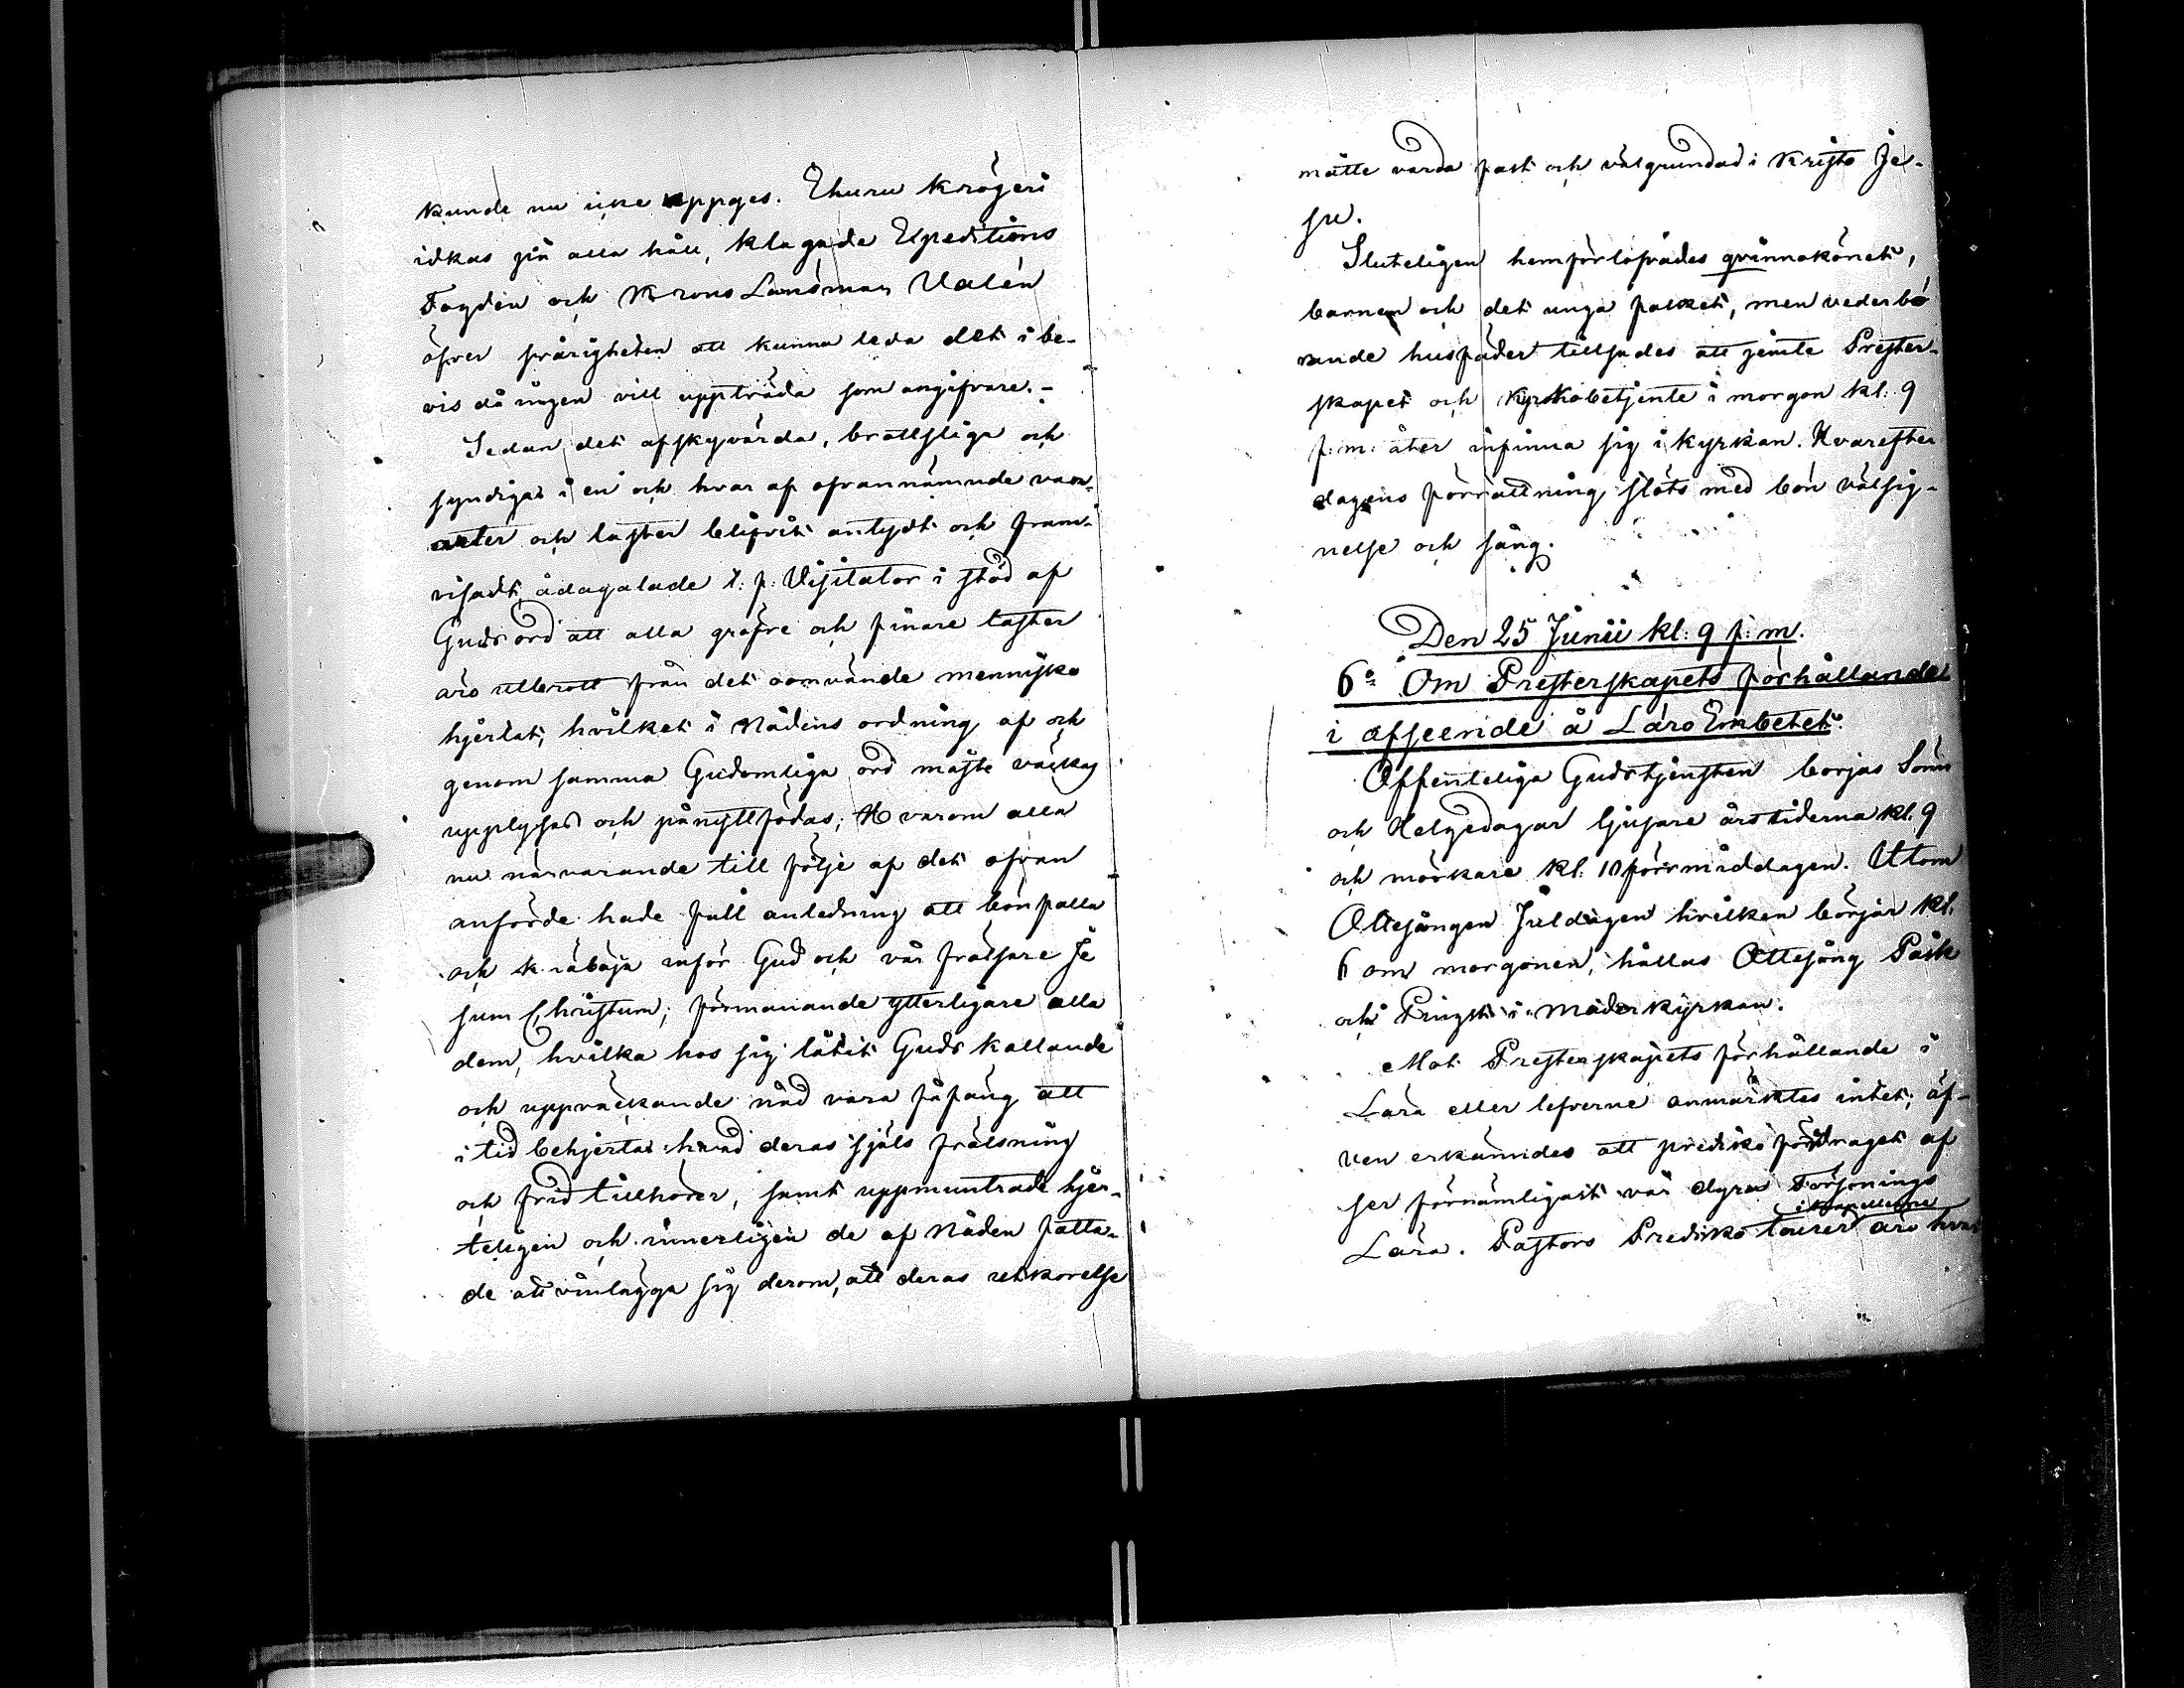 kunde nu icke uppges. Ehuru krögeri
idkas på alla håll, klagade Expeditions
Fogden och Krono Länsman Valén
öfver svårigheten att kunna leda det i be-
vis då ingen vill uppträda som angifvare. -
Sedan det afskyvärda, brottsliga och
syndiga i en och hvar af ofvannämnde van-
arter och laster blifvit antydt och fram-
visadt, ådagalade t. f. Visitator i stöd af
Guds ord att alla gröfre och finare laster
äro utbrott från det oomvände mennisko
hjertat, hvilket i Nådens ordning af och
genom samma Gudomliga ord måste väckas
upplysas och pånyttfödas; Hvarom alla
nu närvarande till följe af det ofvan
anförde hade full anledning att bönfalla
och åkalla inför Gud och vår frälsare Je
sum Christum; förmanande ytterligare alla
dem, hvilka hos sig låtit Guds kallande
och uppväckande nåd vara fåfäng att
i tid behjerta hvad deras själs frälsning
och frid tillhörer, samt uppmuntrade hjer-
teligen och innerligen de af Nåden fatta-
de att vinlägga sig derom, att deras utkorelse
måtte varda fast och välgrundad i Kristo Je-
su.
Sluteligen hemförlofvades qvinnokönet,
barnen och det unga folket, men vederbö
rande husfäder tillsades att jemte Prester-
skapet och Kyrkobetjente i morgon kl: 9
f: m: åter infinna sig i kyrkan. Hvarefter
dagens förrättning slöts med bön välsig-
nelse och sång.
Den 25 Junii kl: 9 f: m.
6o Om Presterskapets förhållande
i afseende å Läro Embetet.
Offenteliga Gudstjensten börjas Sönn
och Helgedagar ljusare årstiderna kl. 9
och mörkare kl. 10 förrmiddagen. Utom
Ottesången Juldagen hvilken börjar kl.
6 om morgonen, hållas Ottesång Påsk
och Pingst i Moderkyrkan.
Mot Presterskapets förhållande i
Lära eller lefverne anmärktes intet; äf-
ven erkändes att prediko föredraget af
ser förnämligast vår dyra Försonings
i kapellerne
Lära. Pastors Predikotourer äro hvar